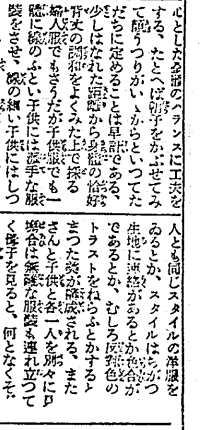 心とした全體のバランスに工夫を
する、たとへば帽子をかぶせてみ
て顔うつりがいゝからといつてた
だちに定めることは早計である、
少しはなれた距離から身體の恰好
背丈の調和をよくみた上で採る
婦人服でもさうだが子供服でも一
體に線のふとい子供には派手な服
裝をさせ、線の細い子供にはしつ
人とも同じスタイルの洋服を
ゐるとか、スタイルはちがつ
生地に連絡があるとか色合が
であるとか、むしろ反對色の
トラストをねらふとかすると
まつた美が構成される、また
さんと子供と各一人を別々に見
場合は無難な服裝も連れ立つて
く母子を見ると、何となくそぐ